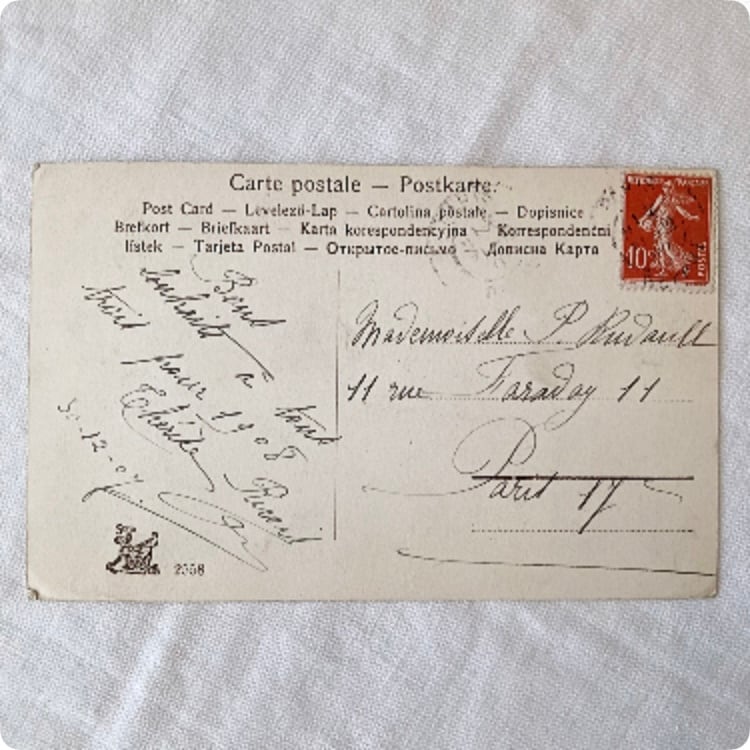 Carte postale — Postkarte.
Post Card — Levelező-Lap — Cartolina postale — Dopisnice
Brefkort — Briefkaart — Karta korespondencyjna — Korrespondenční
lístek — Tarjeta Postal — Открытое-письмо — Дописна Карта
10c
POSTES
Bons
souhaits à tous
trois pour 1908
30-12-07
Mademoiselle P. Rudault
11 rue Faraday 11
Paris 17
2558